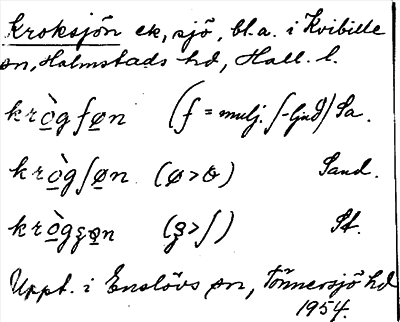 Kroksjön ek, sjö, bl.a. i Kvibille
sn, Halmstads hd, Hall. l.
krò̲gſø̲n (ſ = mulj. ʃ-ljud) Sa.
krò̲gʃø̲n (ø>ɵ) Sand.
krò̲gʒø̲n (ʒ>ʃ) St.
Uppt. i Enslövs sn, Tönnersjö hd
1954.